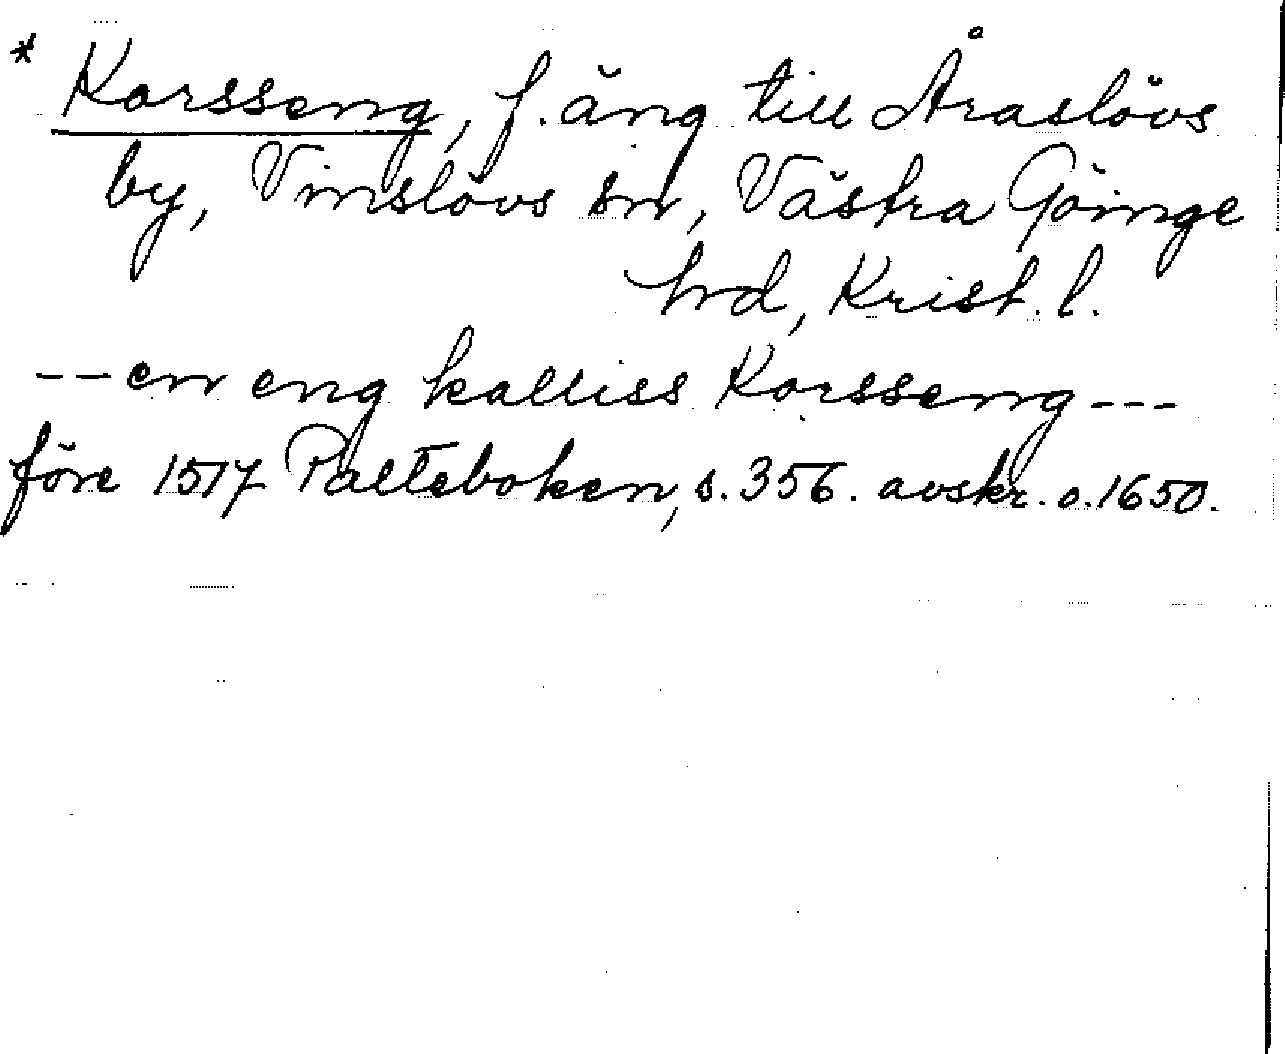 * Korsseng, f. äng till Åraslövs
by, Vinslövs sn, Västra Göinge
hrd, Krist. l.
-- en eng kalliss Korsseng ---
före 1517 Palteboken, s. 356. avskr. o. 1650.